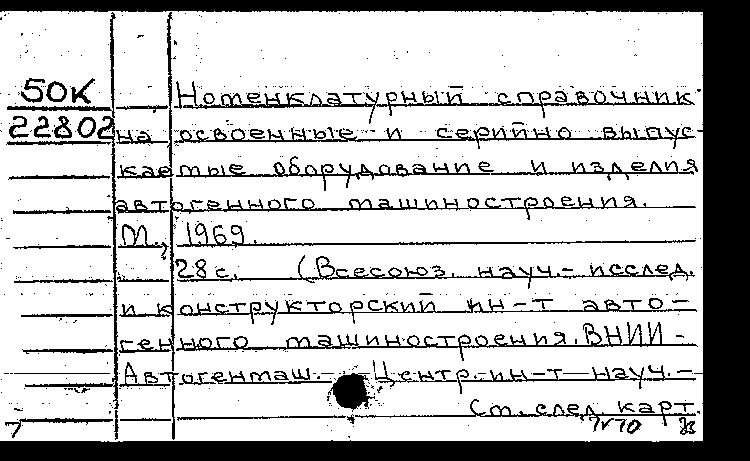 50К
22802
Номенклатурный справочник
на освоенные и серийно выпус-
каемые оборудование и изделия
автогенного машиностроения.
М., 1969.
28с. (Всесоюз. науч.- исслед.
и конструкторский ин-т авто-
генного машиностроения. ВНИИ-
Автогенмаш. Центр. ин-т науч.-
См. след. карт.
7